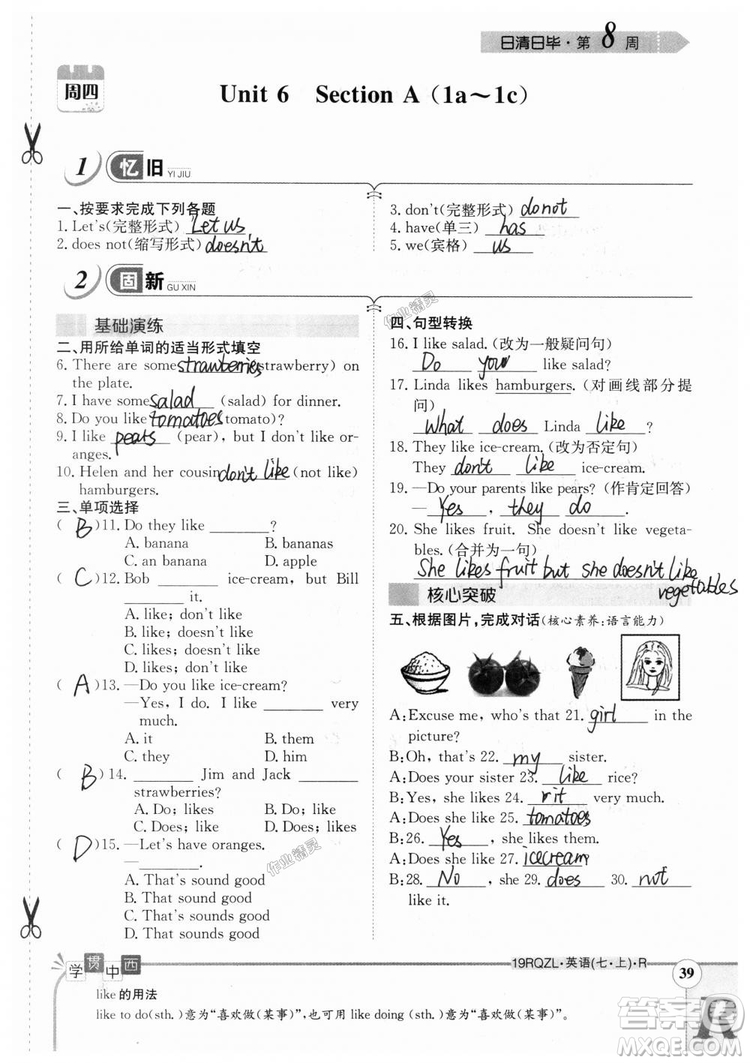 日清日毕·第8周
周四
Unit 6 Section A（1a～1c）
1 忆旧 YI JIU
一、按要求完成下列各题
1. Let's(完整形式) Let us
2. does not(缩写形式) doesn't
3. don't(完整形式) do not
4. have(单三) has
5. we(宾格) us
2 固新 GU XIN
基础演练
二、用所给单词的适当形式填空
6. There are some strawberries(strawberry) on
the plate.
7. I have some salad (salad) for dinner.
8. Do you like tomatoes(tomato)?
9. I like pears (pear), but I don't like or-
anges.
10. Helen and her cousin don't like (not like)
hamburgers.
三、单项选择
( B )11. Do they like ________?
A. banana B. bananas
C. an banana D. apple
( C )12. Bob ________ ice-cream, but Bill
________ it.
A. like; don't like
B. like; doesn't like
C. likes; doesn't like
D. likes; don't like
( A )13. —Do you like ice-cream?
—Yes, I do. I like ________ very
much.
A. it B. them
C. they D. him
( B )14. ________ Jim and Jack ________
strawberries?
A. Do; likes B. Do; like
C. Does; like D. Does; likes
( D )15. —Let's have oranges.
—________.
A. That's sound good
B. That's sounds good
C. That sound good
D. That sounds good
四、句型转换
16. I like salad. (改为一般疑问句)
Do you like salad?
17. Linda likes hamburgers. (对画线部分提
问)
What does Linda like?
18. They like ice-cream. (改为否定句)
They don't like ice-cream.
19. —Do your parents like pears? (作肯定回答)
—Yes, they do.
20. She likes fruit. She doesn't like vegeta-
bles. (合并为一句)
She likes fruit but she doesn't like
vegetables
核心突破
五、根据图片,完成对话(核心素养:语言能力)
A: Excuse me, who's that 21. girl in the
picture?
B: Oh, that's 22. my sister.
A: Does your sister 23. like rice?
B: Yes, she likes 24. rit very much.
A: Does she like 25. tomatoes?
B: 26. Yes, she does.
A: Does she like 27. icecream?
B: 28. No, she 29. does 30. not
like it.
作业精灵
作业精灵
学贯中西
19RQZL·英语(七·上)·R
39
like 的用法
like to do(sth. )意为“喜欢做(某事)”,也可用 like doing (sth. )意为“喜欢做(某事)”。
答案圈
MXQE.COM